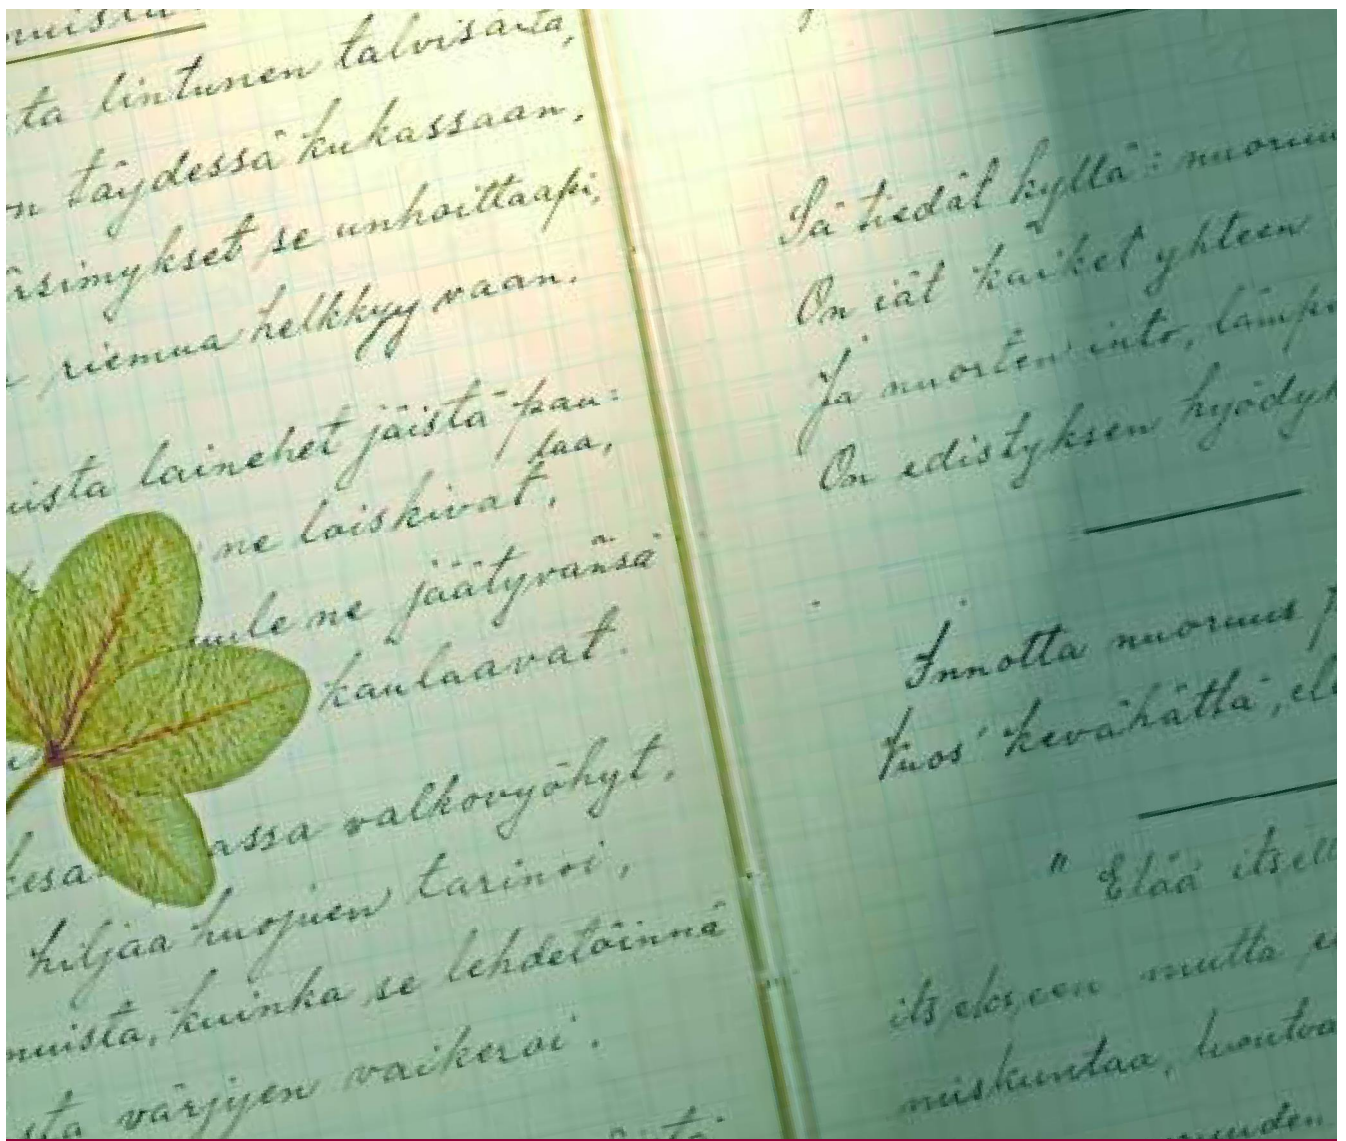 ta lintunen talvisäitä,
täydessä kukassaan,
se unhoittaapi,
riemua helkkyy vaan.
lainehet jäistä pau-
laa,
ne loiskivat,
ne jäätyvänsä
kaulaavat.
valkovyöhyt.
hiljaa huojuen tarinoi,
muista, kuinka se lehdetöinnä
värjyen vaikeroi.
Sä tiedät kyllä: nuoruu
On iät kaiket yhteen
Ja nuorten into, lämpi
On edistyksen hyödyk
Innotta nuoruus
tuos' kevähättä, el
"Elää itsell
itsekseen mutta
miskuntaa, luontoa